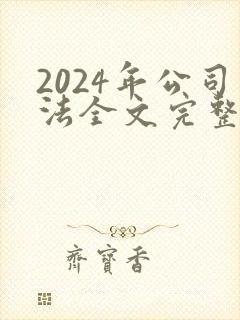 2024年公司
法全文完整
齊寶香